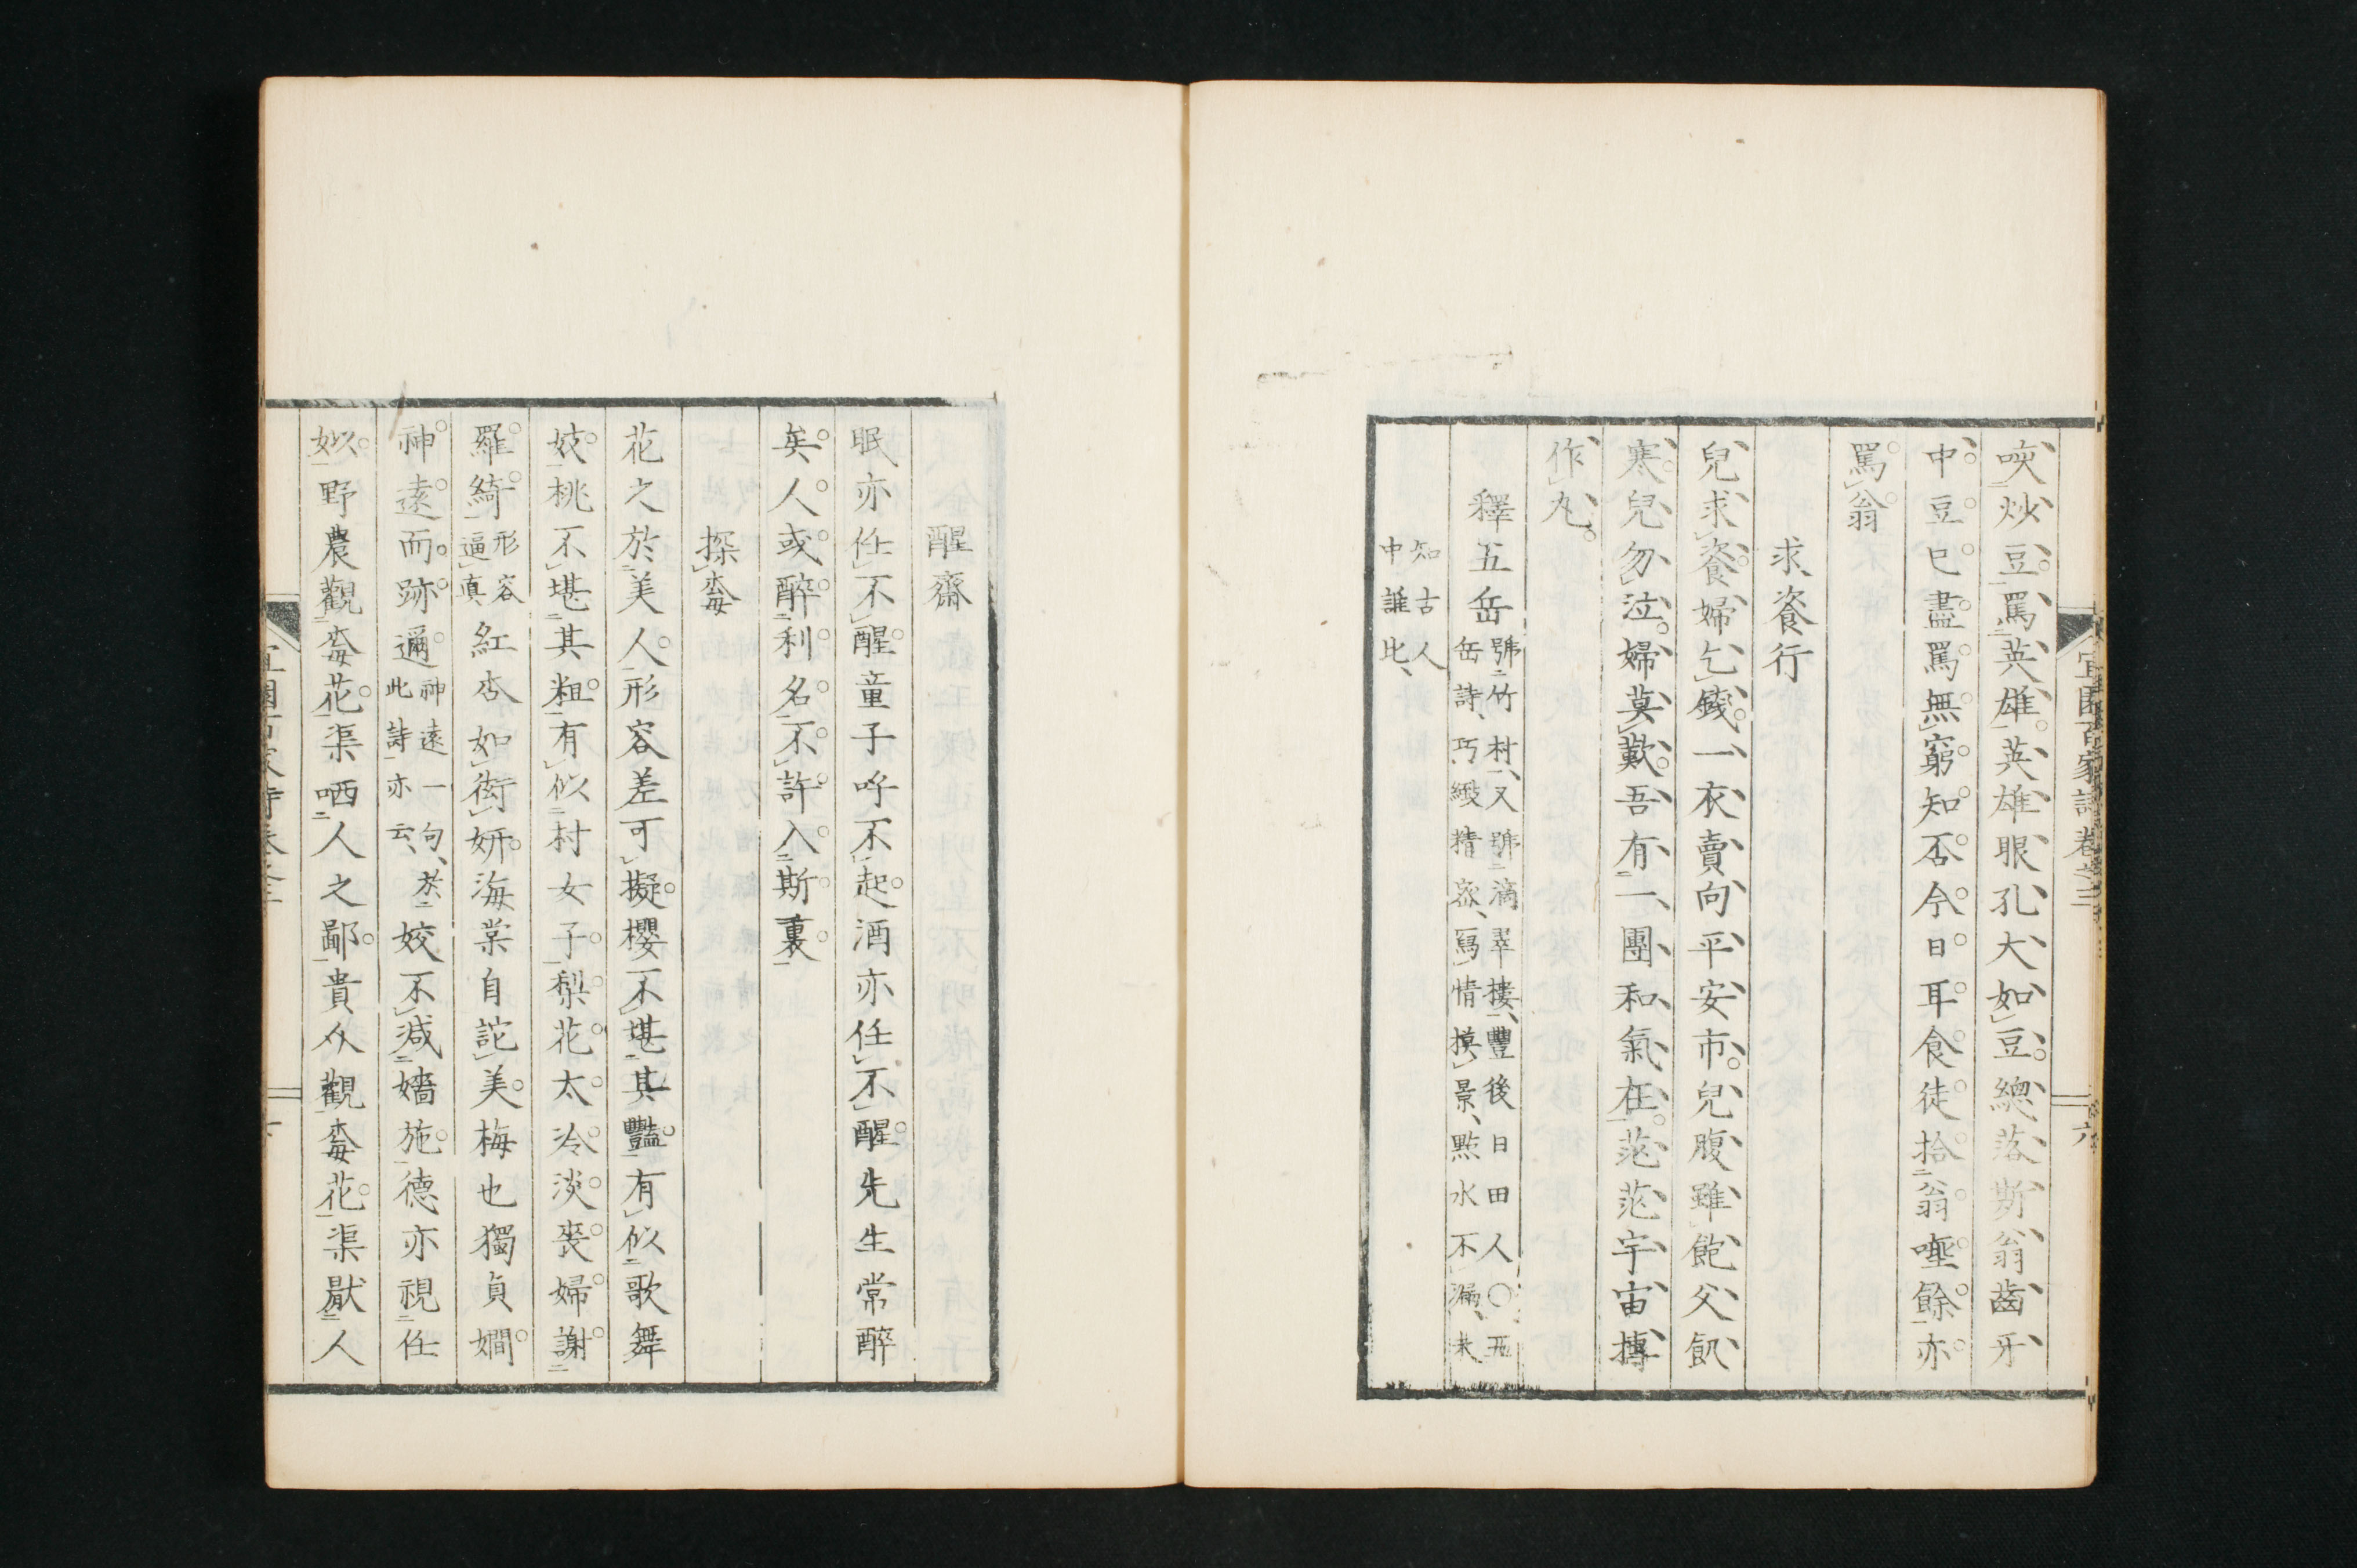 啖炒豆罵英雄英雄眼孔大如豆總落斯翁齒牙
中豆已盡罵無窮知否今日耳食徒拾翁唾餘亦
罵翁
求飡行
兒求飡婦乞錢一衣賣向平安市兒腹雖飽父飢
寒兒勿泣婦莫歎吾有一團和氣在茫茫宇宙摶
作丸
釋五岳
號竹村又號滴翠樓豐後日田人○五
岳詩巧緻精密寫情摸景點水不漏未
知古人
中誰比
宜園百家詩卷之三
六
醒齋
眠亦任不醒童子呼不起酒亦任不醒先生常醉
矣人或醉利名不許入斯裏
探梅
花之於美人形容差可擬櫻不堪其豔有似歌舞
妓桃不堪其粗有似村女子梨花太冷淡喪婦謝
羅綺
形容
逼真
紅杏如衒妍海棠自詫美梅也獨貞嫺
神遠而跡邇
神遠一句
此詩亦云
姣不減嬙施德亦視任
姒野農觀梅花渠哂人之鄙貴介觀梅花渠厭人